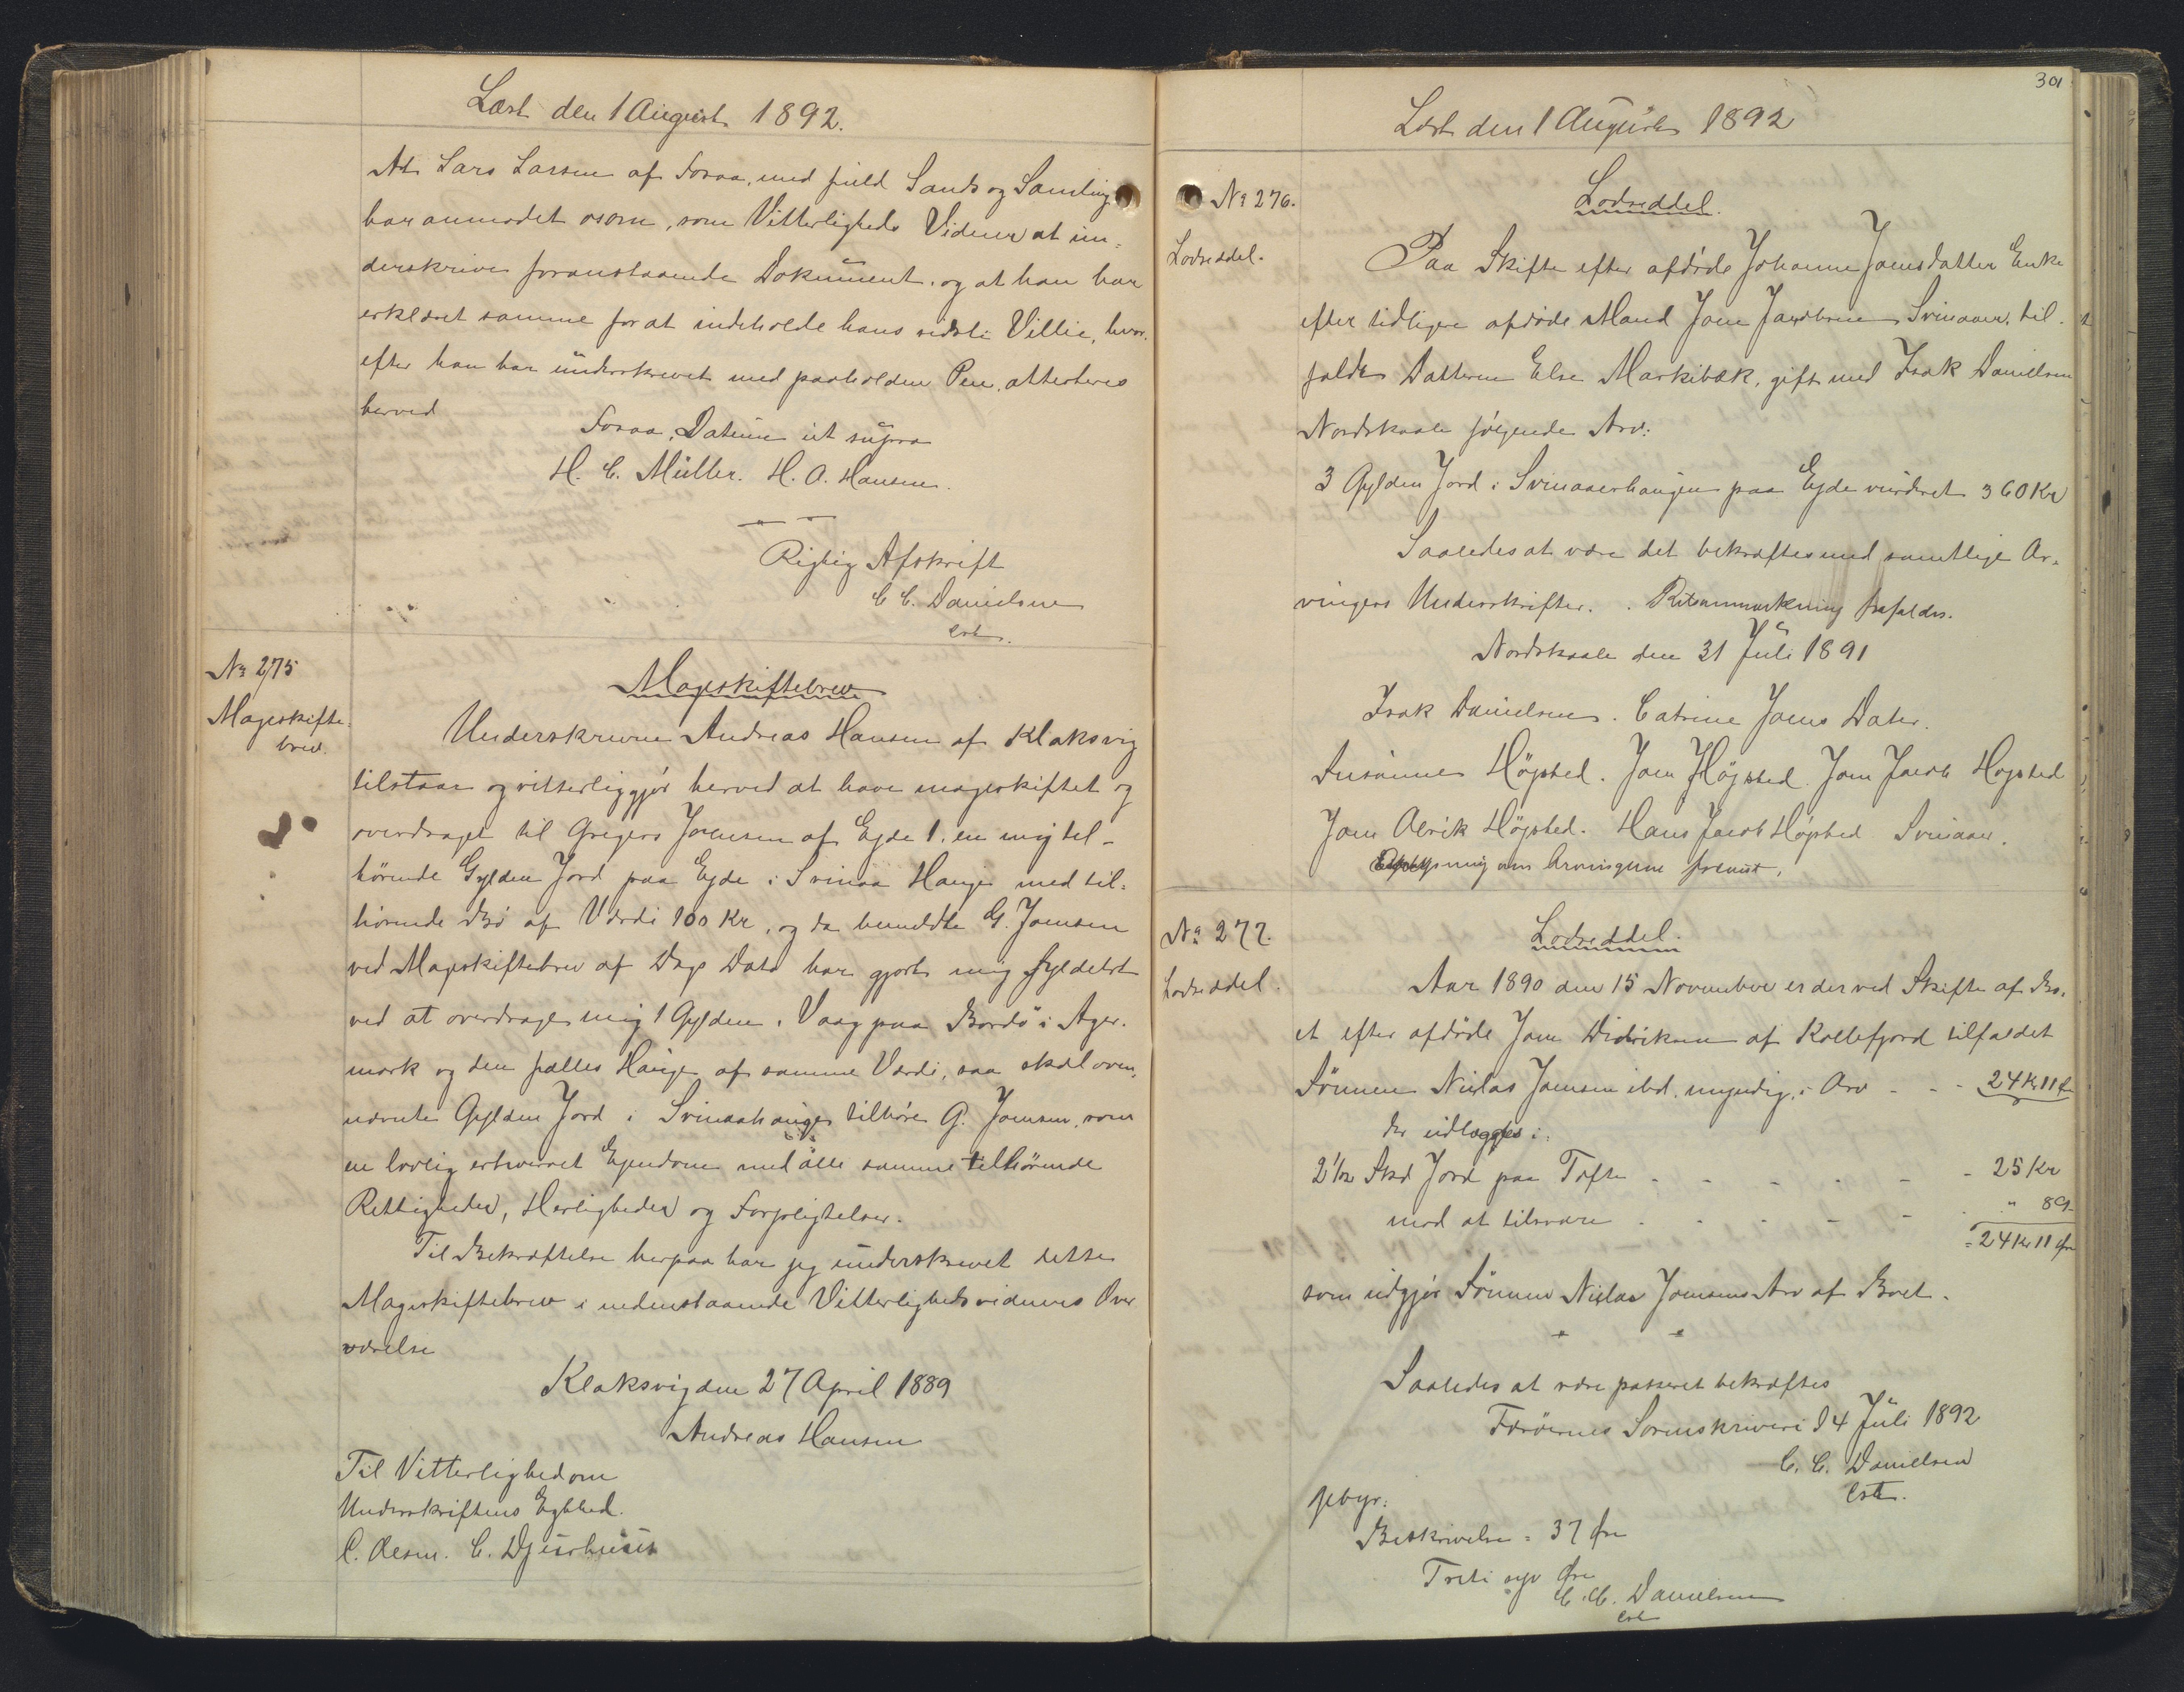 Læst den 1 August 1892.
At Lars Larsen af Foraa, med fuld Sands og Samling
har anmodet os om, som Vitterligheds Vidner at un-
derskrive foranstaaende Dokument, og at han har
erklæret samme for at indeholde hans sidste Villie, hvor-
efter han har underskrevet med paaholden Pen, attesteres
herved
Foraa, Datum ut supra
H. C. Müller. H. O. Hansen.
Rigtig Afskrift
C C. Danielsen
cst.
No 275
Mageskifte-
brev.
Mageskiftebrev
Underskrevne Andreas Hansen af Klaksvig
tilstaar og vitterliggjør herved at have mageskiftet og
overdraget til Gregers Joensen af Ejde 1. en mig til-
hørende Gylden Jord paa Ejde i Svinaa Hauge med til-
hørende Bø af Værdi 100 Kr., og da bemeldte G. Joensen
ved Mageskiftebrev af Dags Dato har gjort mig fyldest
ved at overdrage mig 1 Gylden i Vaag paa Bordø i Ager-
mark og den fælles Hauge af samme Værdi, saa skal oven-
nævnte Gylden Jord i Svinaahauge tilhøre G. Joensen, som
en lovlig erhvervet Ejendom med alle samme tilhørende
Rettigheder, Herligheder og Forpligtelser.
Til Bekræftelse herpaa har jeg underskrevet dette
Mageskiftebrev i nedenstaaende Vitterlighedsvidners Over
værelse
Klaksvig den 27 April 1889
Andreas Hansen
Til Vitterlighed om
Underskriftens Egthed.
C. Olsen. C. Djurhuus
301
Læst den 1 August 1892
No 276.
Lodseddel.
Lodseddel.
Paa Skifte efter afdøde Johanne Joensdatter Enke
efter tidligere afdøde Mand Joen Jacobsen Svinaaer, til-
faldt Datteren Else Markibæk, gift med Isak Danielsen
Nordskaale følgende Arv:
3 Gylden Jord i Svinaaerhaugen paa Ejde vurderet 360 Kr
Saaledes at være det bekræftes med samtlige Ar-
vingers Underskrifter. Retsanmærkning frafaldes.
Nordskaale den 31 Juli 1891
Isak Danielsen. Catrine Joens Dater.
Susanne Højsted. Joen Højsted. Joen Jacob Hojsted
Joen Olrik Højsted. Hans Jacob Højsted Svinaaer.
Oplysning om Arvingerne fremst.
No 277.
Lodseddel.
Lodseddel.
Aar 1890 den 15 November er der ved Skifte af Bo-
et efter afdøde Joen Didriksen af Kollefjord tilfaldet
Sønnen Niclas Joensen ibd. myndig, i Arv - - - 24 Kr 11 Ø
der udlægges i:
2 1/2 Skd Jord paa Tofte - - - - - - 25 Kr
mod at tilsvare - - - - - - " 89
= 24 Kr 11 Øre
som udgjør Sønnen Niclas Joensens Arv af Boet.
Saaledes at være passeret bekræftes
Færøernes Sorenskriveri 14 Juli 1892
C. C. Danielsen
cst.
Gebyr:
Beskrivelse = 37 Øre
Treti syv Øre
C. C. Danielsen
cst